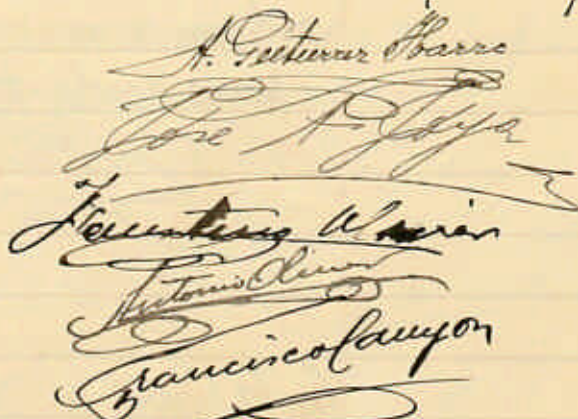 A. Gutierrez Ybarra
Jose A. Joya
Faustino
Antonio Oliver
Francisco Camyon